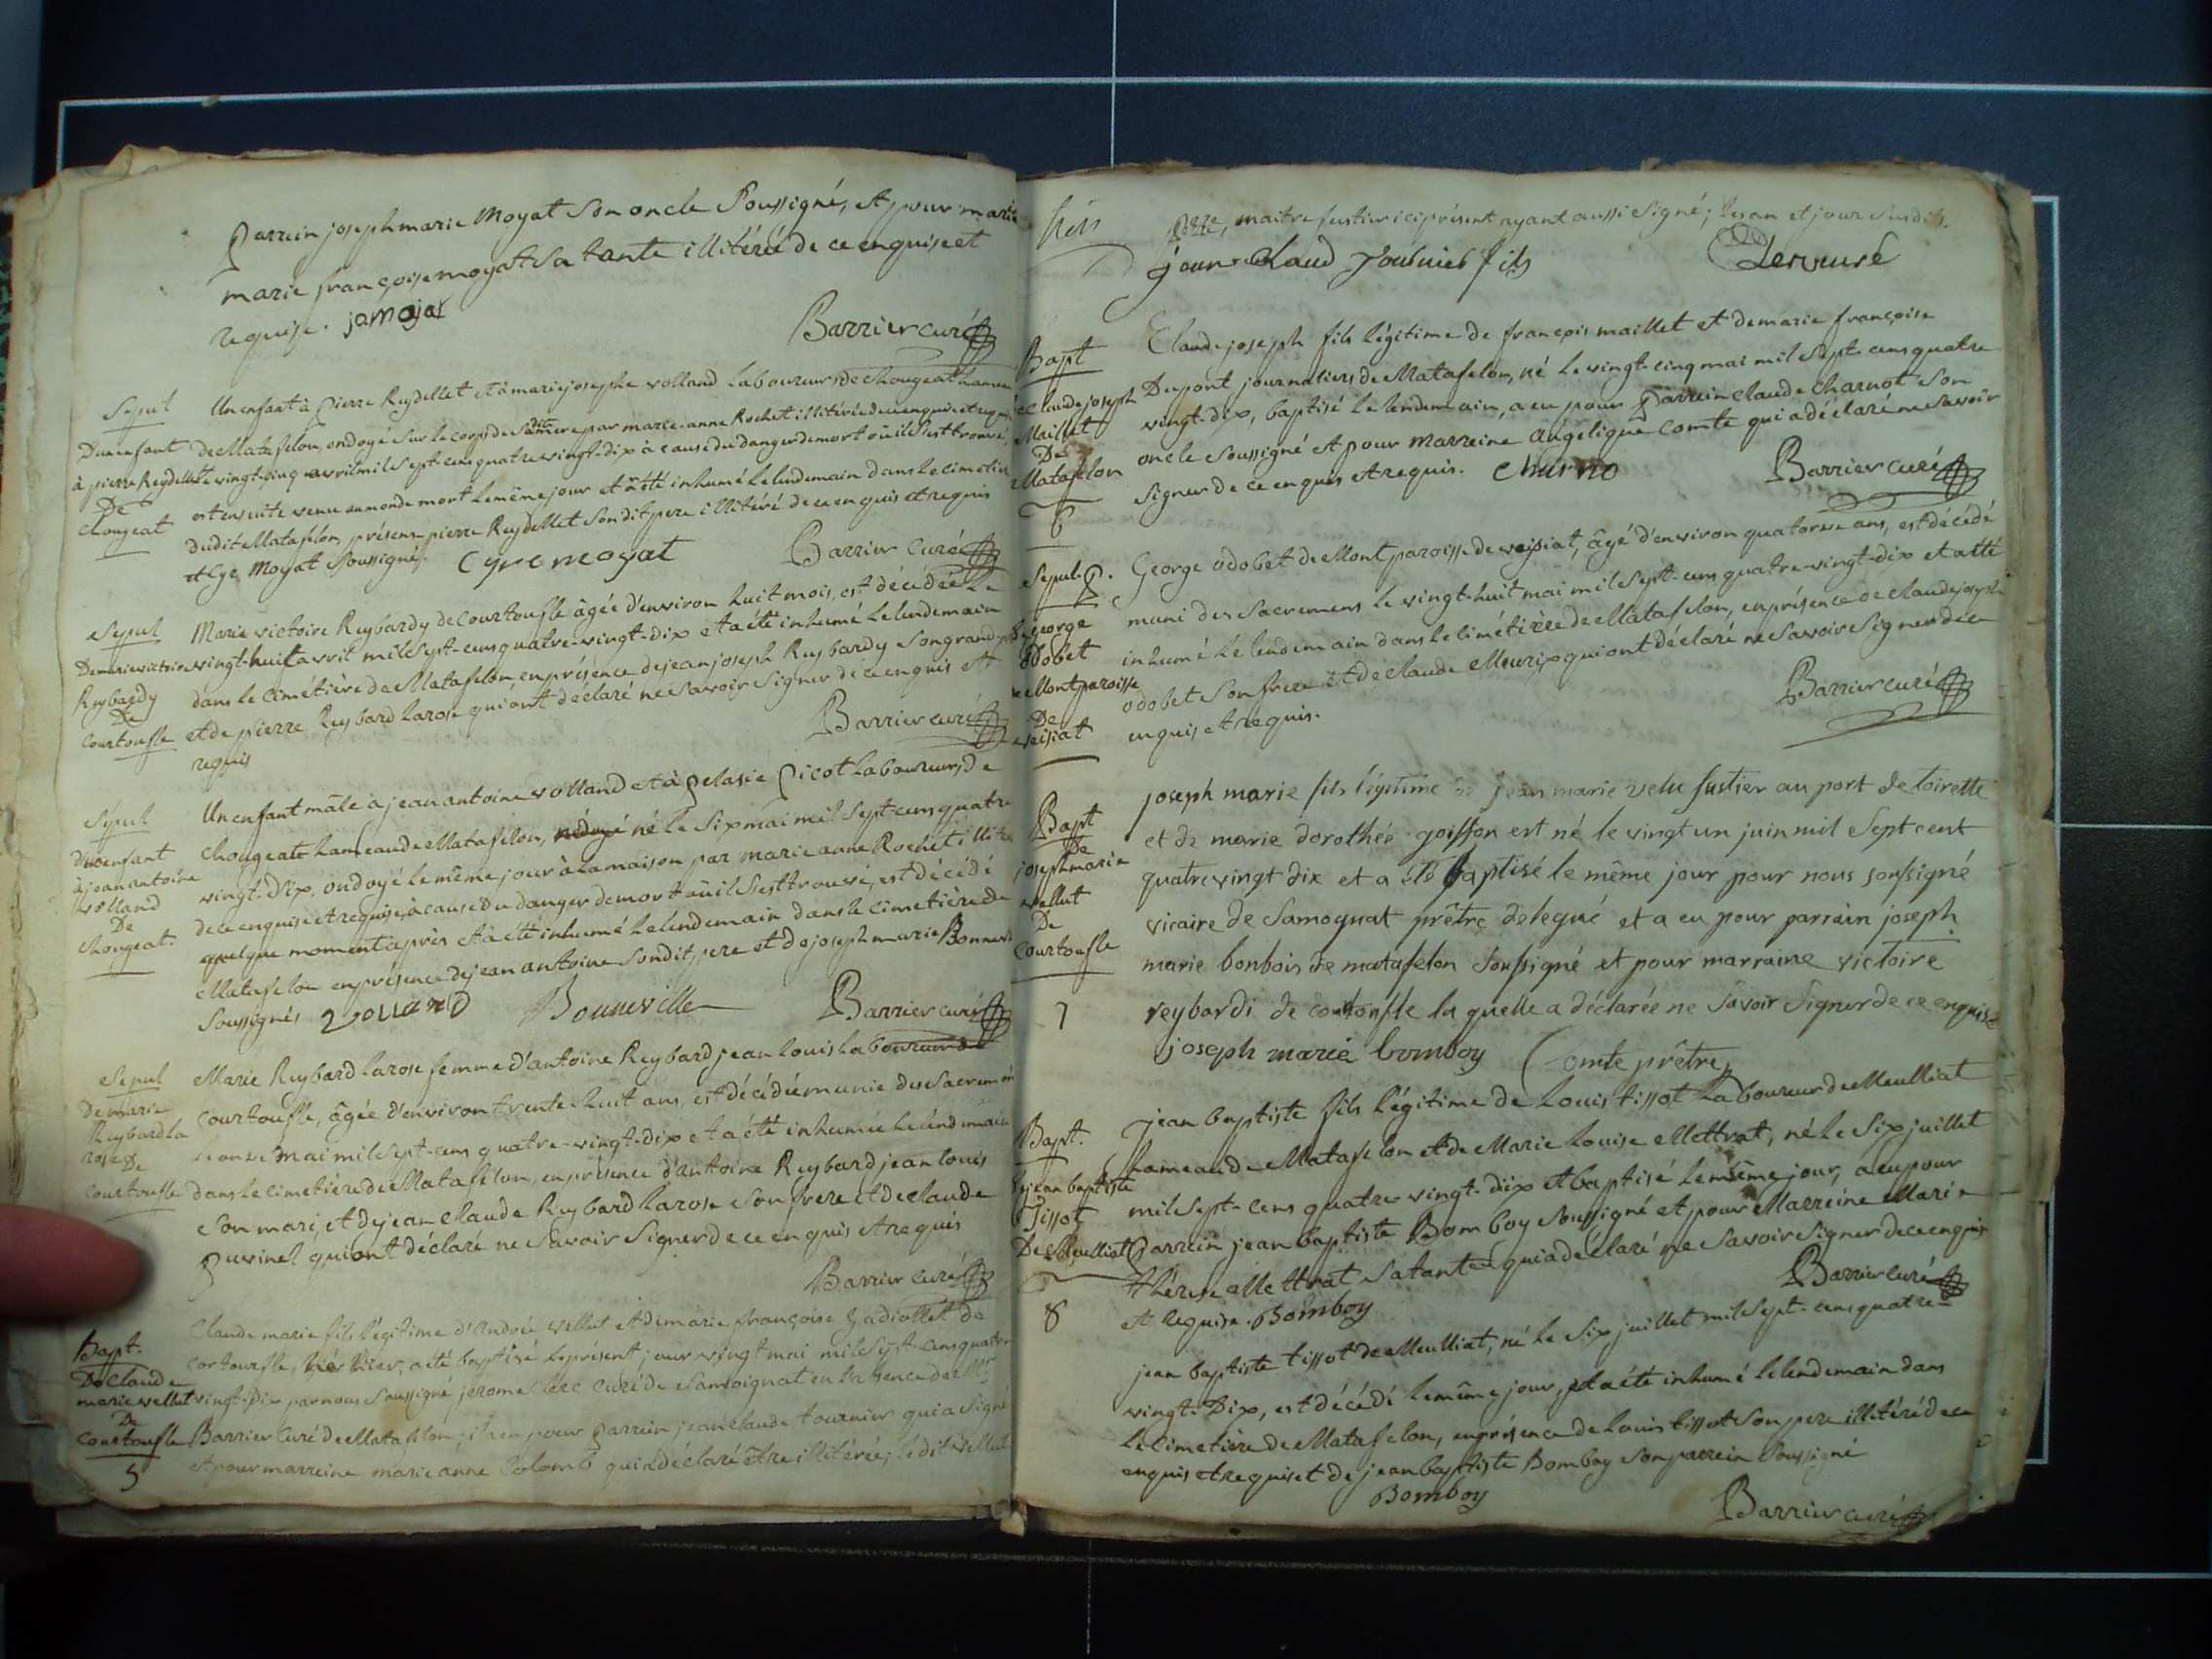 Parrein joseph marie Moyat son oncle soussigné, et pour mareine
marie françoise moyat sa tante illitérée de ce enquise et
requise. jamojat
Barrier curé
Sepul
D'un enfant
à pierre Reydellet
De
Chougeat
Un enfant à pierre Reydellet et à marie josephe volland laboureurs de Chougeat hameau
de Matafelon, ondoyé sur le corps de sa dite mere par marie-anne Rochet illitérée de ce enquise et requise
le vingt-cinq avril mil sept-cens quatre vingt-dix à cause du danger de mort où il s'est trouvé,
est ensuite venu au monde mort le même jour et a été inhumé le lendemain dans le cimetière
dudit Matafelon, présens pierre Reydellet son dit pere illitéré de ce enquis et requis
et Cyr Moyat soussigné. Cyre moyat
Barrier Curé
Sepul
De marie victoire
Reybardy
De
Courtoufle
Marie victoire Reybardy de Courtoufle âgée d'environ huit mois, est décédée le
vingt-huit avril mil sept-cens quatre-vingt-dix et a été inhumé le lendemain
dans le cimétière de Matafelon, en présence de jean joseph Reybardy son grand pere
et de pierre Reybard larose qui ont déclaré ne savoir signer de ce enquis et
requis
Barrier curé
Sépul
D'un enfant
à jean antoine
volland
De
Chougeat.
Un enfant mâle à jean antoine volland et à pelasie Picot laboureurs, de
Chougeat hameau de Matafelon, né le six mai mil sept-cens quatre
vingt-Dix, ondoyé le même jour à la maison par marie anne Rochet illitérée
de ce enquise et requise, à cause du danger de mort où il s'est trouvé, est décédé
quelque moment après et a été inhumé le lendemain dans le cimetière de
Matafelon en présence de jean antoine son dit pere et de joseph marie Bonneville
soussignés volland Bonneville Barrier curé
Sepul
De marie
Reybard la
rose De
Courtoufle
Marie Reybard larose femme d'antoine Reybard jean louis laboureur de
Courtoufle, âgée d'environ trente huit ans, est décédée munie des Sacremens
le onze mai mil sept-cens quatre-vingt-dix et a été inhumée le lendemain
dans le cimetière de Matafelon, en présence d'antoine Reybard jean louis
son mari, et de jean claude Reybard larose son frere et de claude
Puvinel qui ont déclaré ne savoir signer de ce enquis et requis
Barrier curé
Bapt.
De Claude
marie vellut
De
Courtoufle
5
Claude marie fils légitime d'andré vellut et de marie françoise Gadiollet de
Cortoufle, né hier, a été baptisé le présent jour vingt mai mil sept-cens quatre
vingt-Dix par nous soussigné jerome Clerc curé de Samoignat en l'absence de
Barrier curé de Matafelon; il a eu pour parrein jean claude tournier qui a signé
et pour marreine marie anne Colomb qui a déclaré être illitérée; ledit vellut
pere, maitre fustier ici présent ayant aussi signé; les an et jour susdits.
jean claud fournier fils
Bapt
De Claude joseph
Maillet
De
Matafelon
6
Claude joseph fils légitime de françois maillet et de marie françoise
Dupont journaliers de Matafelon, né le vingt-cinq mai mil sept-cens quatre
vingt-dix, baptisé le lendemain, a eu pour parrein claude Charnot son
oncle soussigné et pour marreine angelique Comte qui a déclaré ne savoir
signer de ce enquis et requis. charno
Barrier curé
Sepul.
De george
odobet
de Mont paroisse
De
veisiat
George odobet de Mont paroisse de veisiat, âgé d'environ quatorze ans, est décédé
muni des sacremens le vingt-huit mai mil sept-cens quatre-vingt-dix et a été
inhumé le lendemain dans le cimétière de Matafelon, en présence de claude joseph
odobet son frere et de claude Mourix qui ont déclaré ne savoir signer de ce
enquis et requis.
Barrier curé
Bapt
De
joseph marie
vellut
De
Courtoufle
7
joseph marie fils légitime de jean marie velu fustier au port de toirette
et de marie dorothée goiffon est né le vingt un juin mil sept cent
quatre vingt dix et a été baptisé le même jour pour nous soussigné
vicaire de Samognat prêtre delegué et a eu pour parrain joseph
marie bonbois de matafelon soussigné et pour marraine victoire
reybardi de contoufle la quelle a déclarée ne savoir signer de ce enquise
joseph marie bomboy Comte prêtre
Bapt.
De jean baptiste
Tissot
De Meulliat
8
jean baptiste fils légitime de Louis tissot laboureur de Meulliat
hameau de Matafelon et de Marie Louise Mettrat, né le six juillet
mil sept-cens quatre-vingt-dix et baptisé le même jour, a eu pour
parrein jean baptiste Bomboy soussigné et pour Marreine Marie
thérese Mettrat sa tante qui a déclaré ne savoir signer de ce enquise
et requise. Bomboy
Barrier curé
jean baptiste tissot de Meulliat, né le six juillet mil sept-cens quatre-
vingt-Dix, est décédé le même jour, et a été inhumé le lendemain dans
le cimetière de Matafelon, en présence de Louis tissot son pere illitéré de ce
enquis et requis et de jean baptiste Bomboy son parrein soussigné
Bomboy
Barrier curé